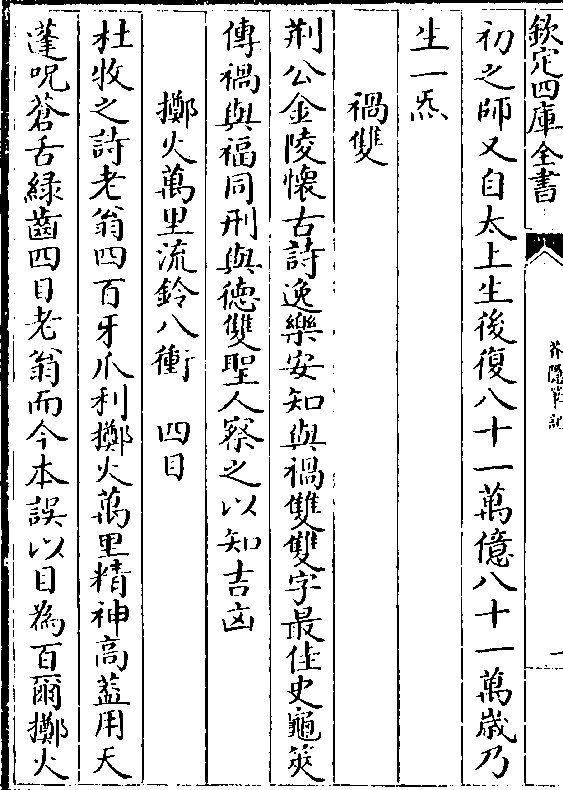 欽定四庫全書
芥隱筆記
初之師又自太上生後復八十一萬億八十一萬歲乃
生一炁
禍雙
荆公金陵懷古詩逸樂安知與禍雙雙字最佳史龜筴
傳禍與福同刑與德雙聖人察之以知吉凶
擲火萬里流鈴八衝　四目
杜牧之詩老翁四百牙爪利擲火萬里精神高蓋用天
蓬呪蒼舌緑齒四目老翁而今本誤以目為百爾擲火